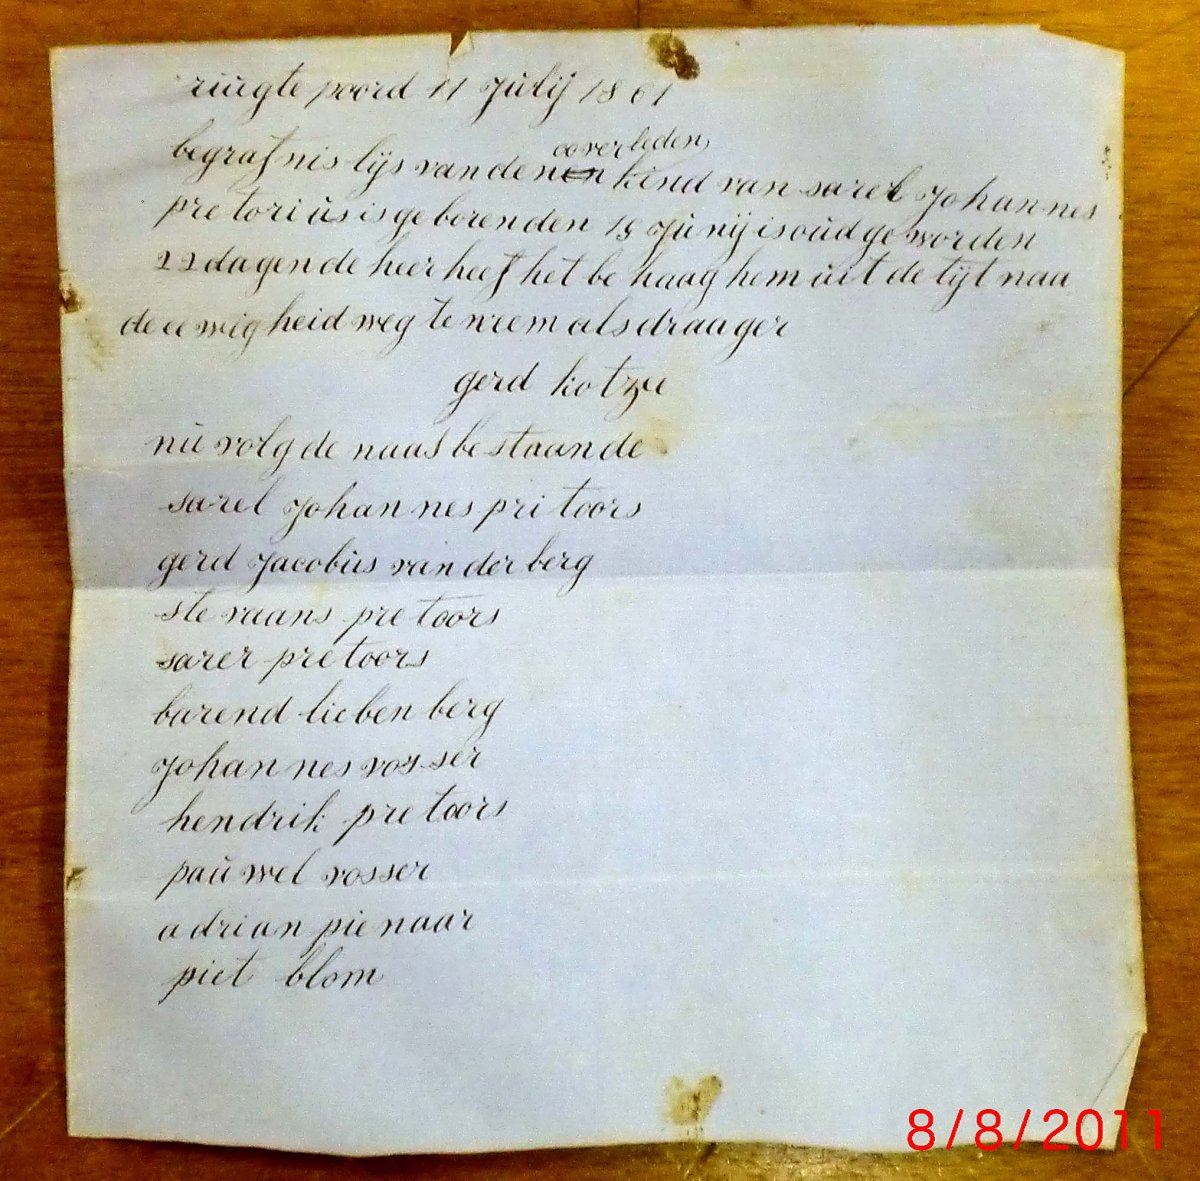 ruigte poord 11 Julij 1861
begrafnis lijs van den ooverleden kind van sarel Johannes
pretorius is geboren den 19 Junij is oud geworden
22 dagen de heer heef het be haag hem uit de tijt naa
de eewigheid weg te neem als draager
gerd kotzee
nu volg de naas bestaande
sarel Johannes pritoors
gerd Jacobus van der berg
stevaans pretoors
sarer pretoors
barend lieben berg
Johannes vosser
hendrik pretoors
pauwel vosser
adrian pienaar
piet blom
8/8/2011